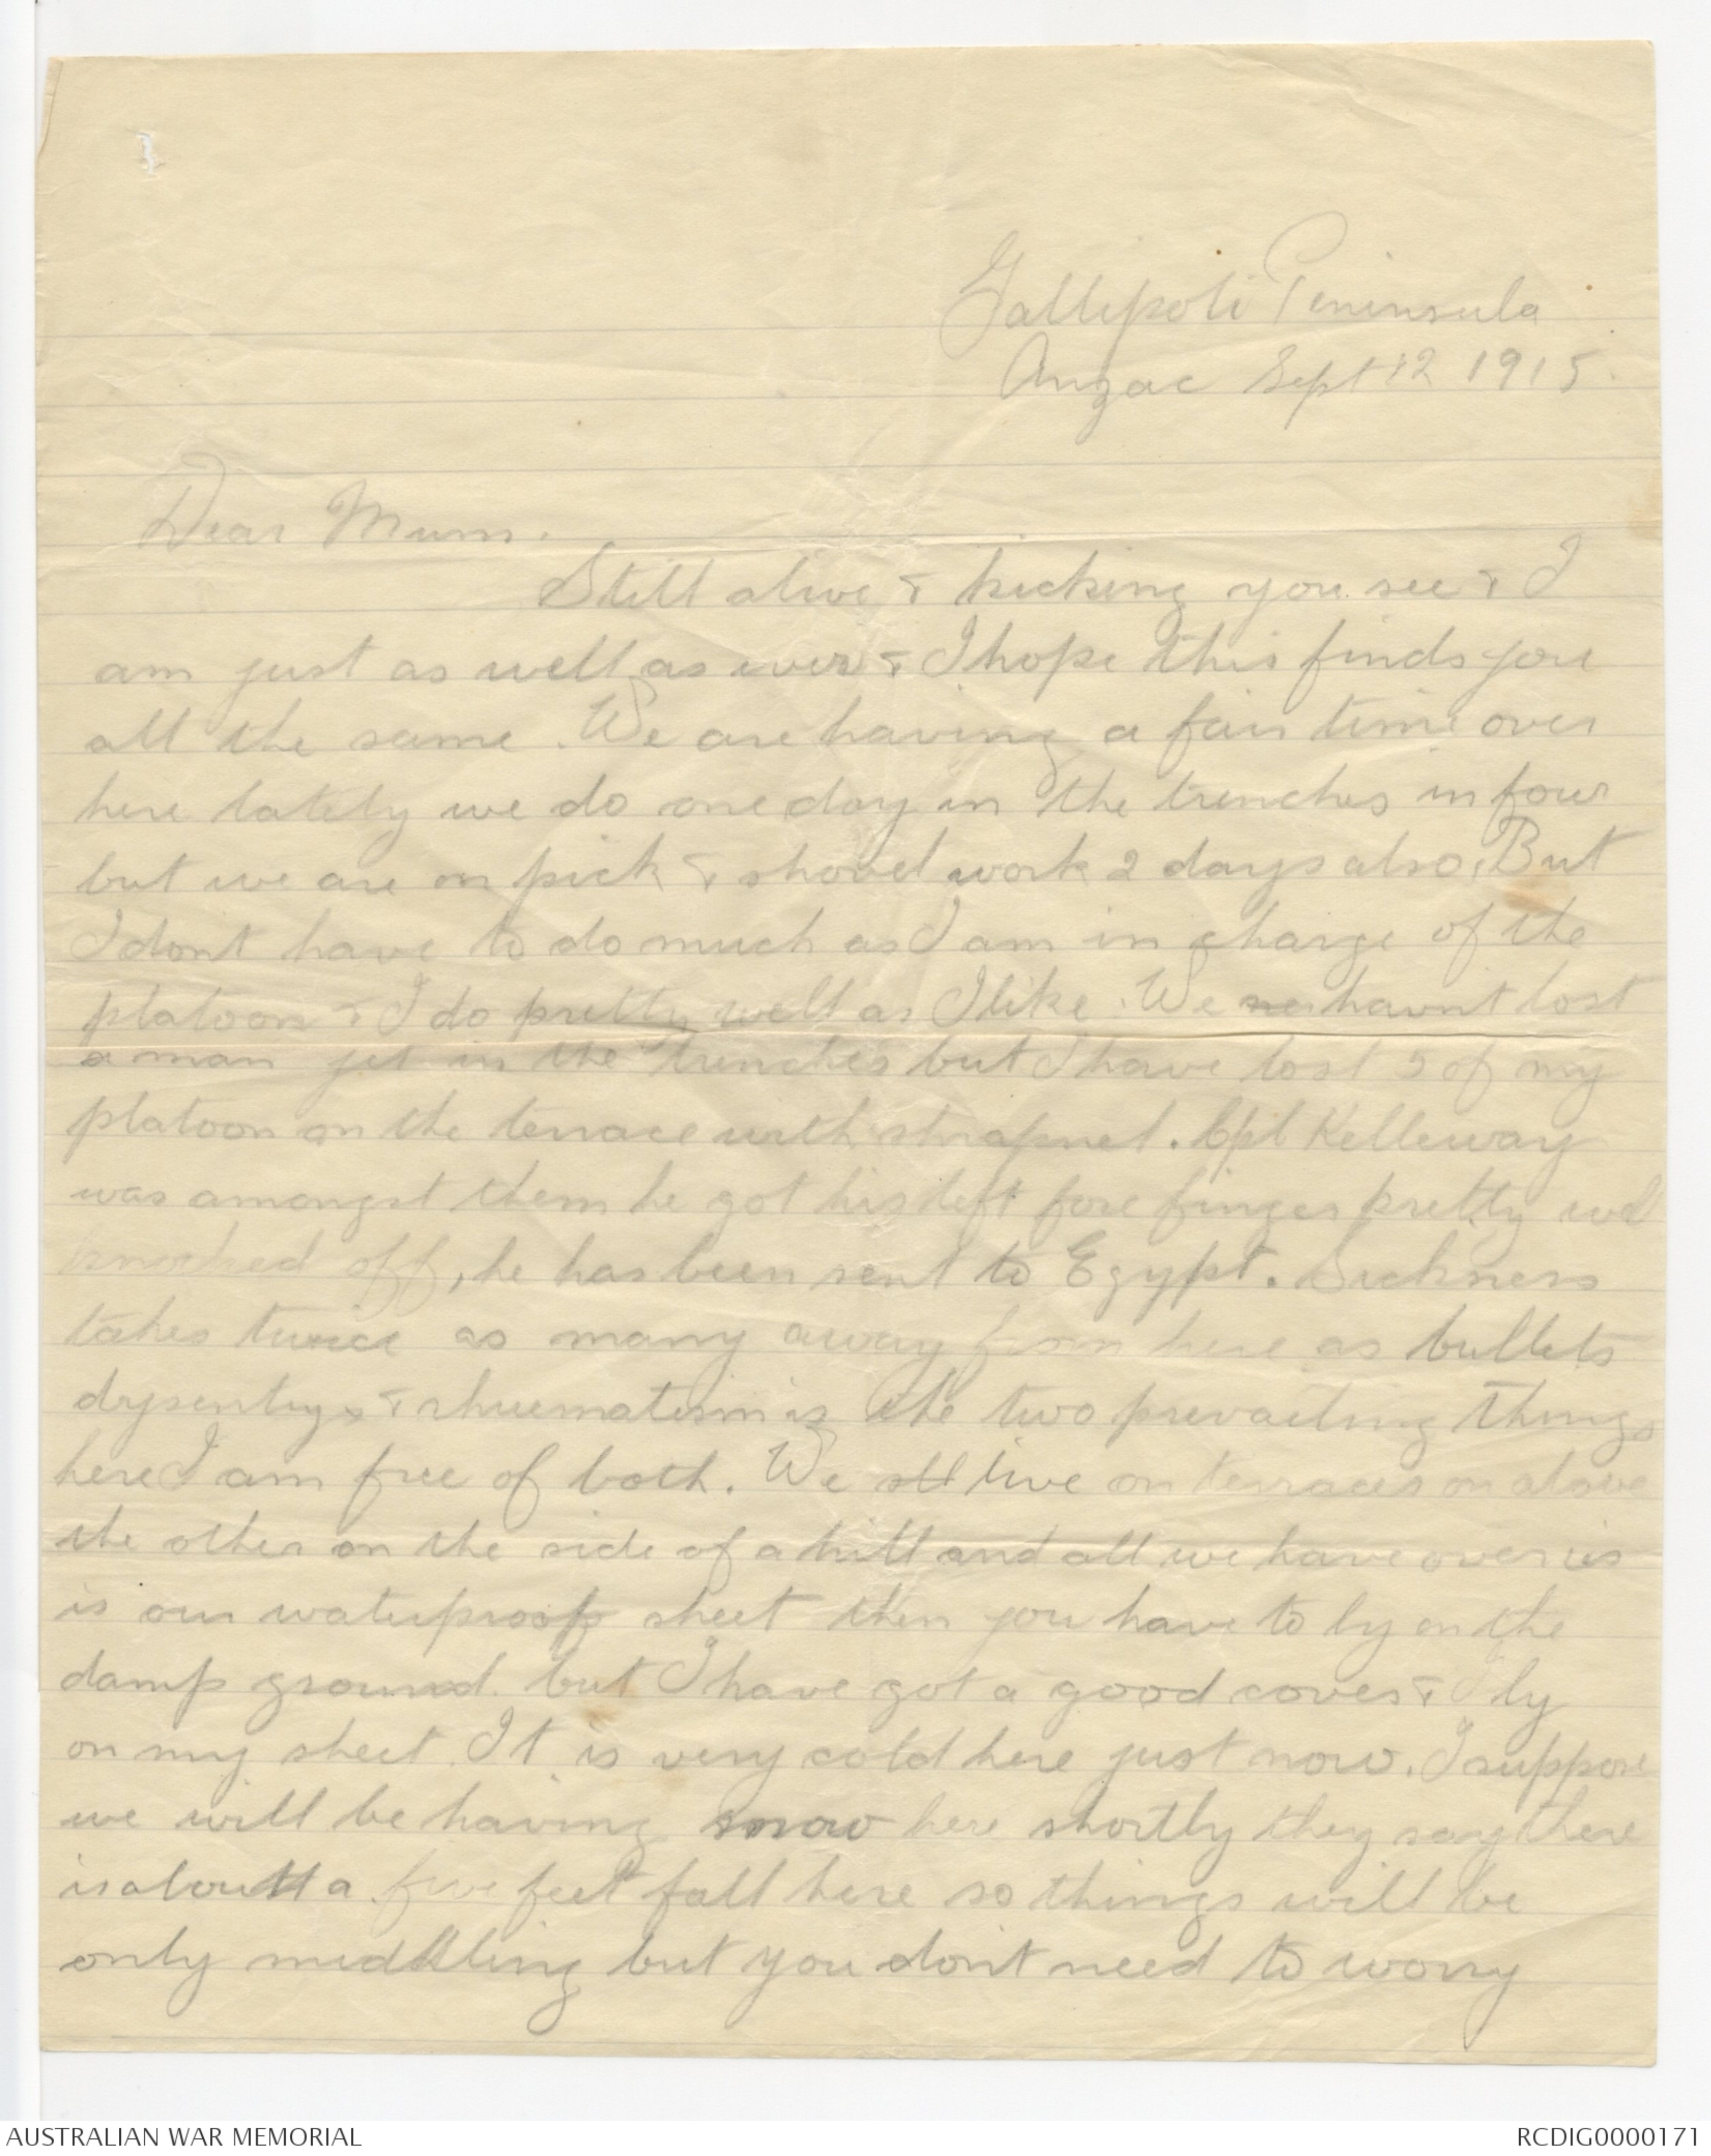 Gallipoli Peninsula
Anzac Sept 12 1915.
Dear Mum.
Still alive & kicking you see & I
am just as well as ever & I hope this finds you
all the same. We are having a fair time over
here lately we do one day in the trenches in four
but we are on pick & shovel work 2 days also. But
I dont have to do much as I am in charge of the
platoon & I do pretty well as I like. We havnt lost
a man yet in the trenches but I have lost 2 of my
platoon on the terrace with shrapnel. Cpl Kelleway
was amongst them he got his left fore finger pretty well
knocked off, he has been sent to Egypt. Sickness
takes twice as many away from here as bullets
drysentry & rhuematism is the two prevailing things
here I am free of both. We all live on terraces on above
the other on the side of a hill and all we have over us
is our waterproof sheet then you have to ly on the
damp ground. but I have got a good cover & I ly
on my sheet. It is very cold here just now. I suppose
we will be having snow here shortly they say there
is about a five feet fall here so things will be
only middling but you dont need to worry
AUSTRALIAN WAR MEMORIAL
RCDIG0000171